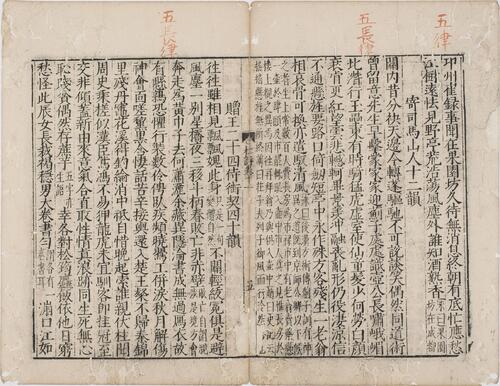 五律
邛州崔錄事聞在果園坊久待無消息終朝有底忙應愁
江樹遠怯見野亭荒浩蕩風塵外誰知酒熟香
五長律
寄司馬山人十二韻
關內昔分袂天邊今轉蓬驅馳不可說談笑偶然同道術
曾留意先生早擊蒙家家迎薊子處處識壺公長嘯峨嵋
北潛行玉壘東有時騎猛虎虛室使仙童髮少何勞白顏
衰肯更紅望雲悲轗軻畢景羨沖融喪亂形仍役淒涼信
不通懸旌要路口倚劍短亭中永作殊方客殘生一老翁
相哀骨可換亦遣馭清風
五長律
贈王二十四侍御契四十韻
往往雖相見飄飄愧此身 不關輕紱冕俱是避
風塵一別星橋夜三移斗柄春敗亡非赤壁
奔走為黃巾子去何瀟灑余藏異隱淪書成無過雁衣故
有懸鶉恐懼行裝數伶俜臥疾頻曉鶯工迸淚秋月解傷
神會面嗟黧黑含悽話苦辛接輿還入楚王粲不歸秦錦
里殘丹竈花溪得釣綸消中祗自惜晚起索誰親伏柱聞
周史乘槎有漢臣鴛鴻不易狎龍虎未宜馴客即挂冠至
交非傾蓋新由來意氣合直取性情真浪跡同生死無心
恥賤貧偶然存蔗芋 幸各對松筠麤飯依他日窮
愁怪此辰女長裁褐穩男大卷書勻 漰口江如